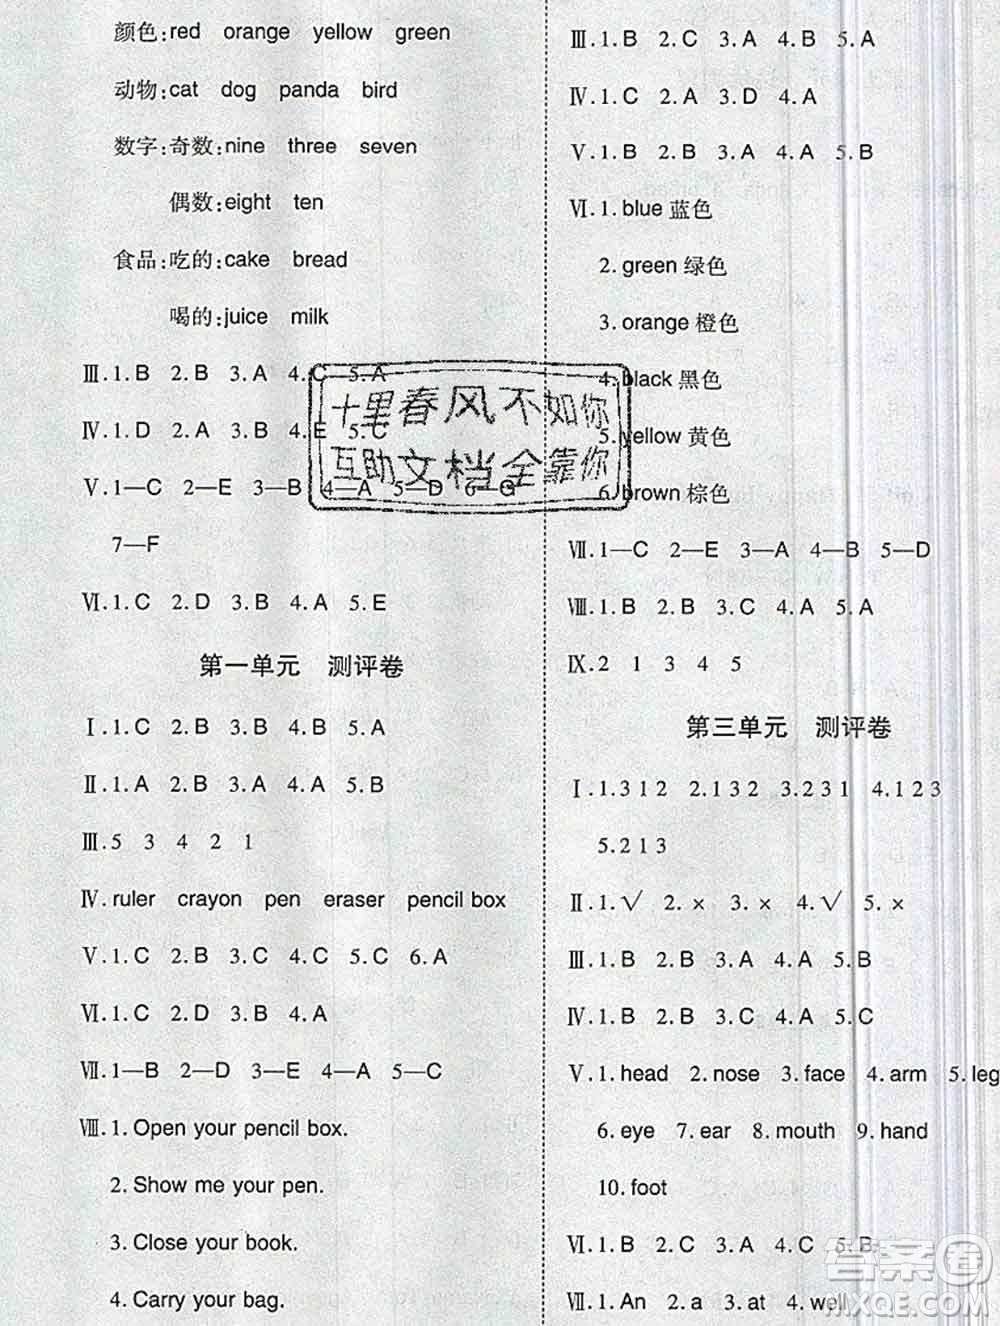 颜色:red orange yellow green
动物:cat dog panda bird
数字:奇数:nine three seven
偶数:eight ten
食品:吃的:cake bread
喝的:juice milk
Ⅲ.1.B 2.B 3.A 4.C 5.A
Ⅳ.1.D 2.A 3.B 4.E 5.C
Ⅴ.1—C 2—E 3—B 4—A 5—D 6—G
7—F
Ⅵ.1.C 2.D 3.B 4.A 5.E
第一单元 测评卷
Ⅰ.1.C 2.B 3.B 4.B 5.A
Ⅱ.1.A 2.B 3.A 4.A 5.B
Ⅲ.5 3 4 2 1
Ⅳ.ruler crayon pen eraser pencil box
Ⅴ.1.C 2.B 3.C 4.C 5.C 6.A
Ⅵ.1.C 2.D 3.B 4.A
Ⅶ.1—B 2—D 3—E 4—A 5—C
Ⅷ.1.Open your pencil box.
2.Show me your pen.
3.Close your book.
4.Carry your bag.
十里春风不如你
互助文档全靠你
Ⅲ.1.B 2.C 3.A 4.B 5.A
Ⅳ.1.C 2.A 3.D 4.A
Ⅴ.1.B 2.B 3.A 4.A 5.B
Ⅵ.1.blue 蓝色
2.green 绿色
3.orange 橙色
4.black 黑色
5.yellow 黄色
6.brown 棕色
Ⅶ.1—C 2—E 3—A 4—B 5—D
Ⅷ.1.B 2.B 3.C 4.A 5.A
Ⅸ.2 1 3 4 5
第三单元 测评卷
Ⅰ.1.3 1 2 2.1 3 2 3.2 3 1 4.1 2 3
5.2 1 3
Ⅱ.1.√ 2.× 3.× 4.√ 5.×
Ⅲ.1.B 2.B 3.A 4.A 5.A
Ⅳ.1.B 2.B 3.A 4.C 5.C
Ⅴ.1.head 2.nose 3.face 4.arm 5.leg
6.eye 7.ear 8.mouth 9.hand
10.foot
Ⅵ.1.B 2.C 3.A 4.C 5.B
Ⅶ.1.An 2.a 3.at 4.well
答案圈
MXQE.COM